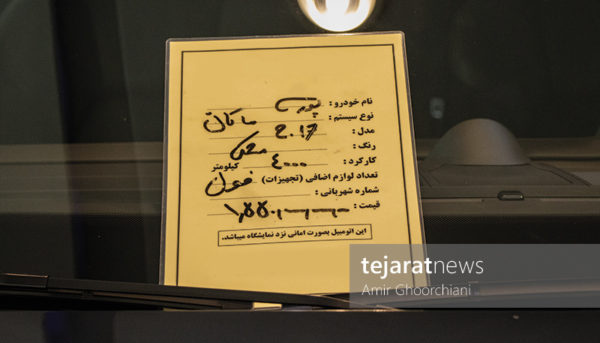 نام خودرو : پورشه
نوع سیستم : ماکان
مدل : 2017
رنگ : مشکی
کارکرد : ٤٠٠٠ کیلومتر
تعداد لوازم اضافی (تجهیزات) فول
شماره شهربانی :
قیمت :
این اتومبیل بصورت امانی نزد نمایشگاه میباشد.
tejaratnews
Amir Ghoorchiani